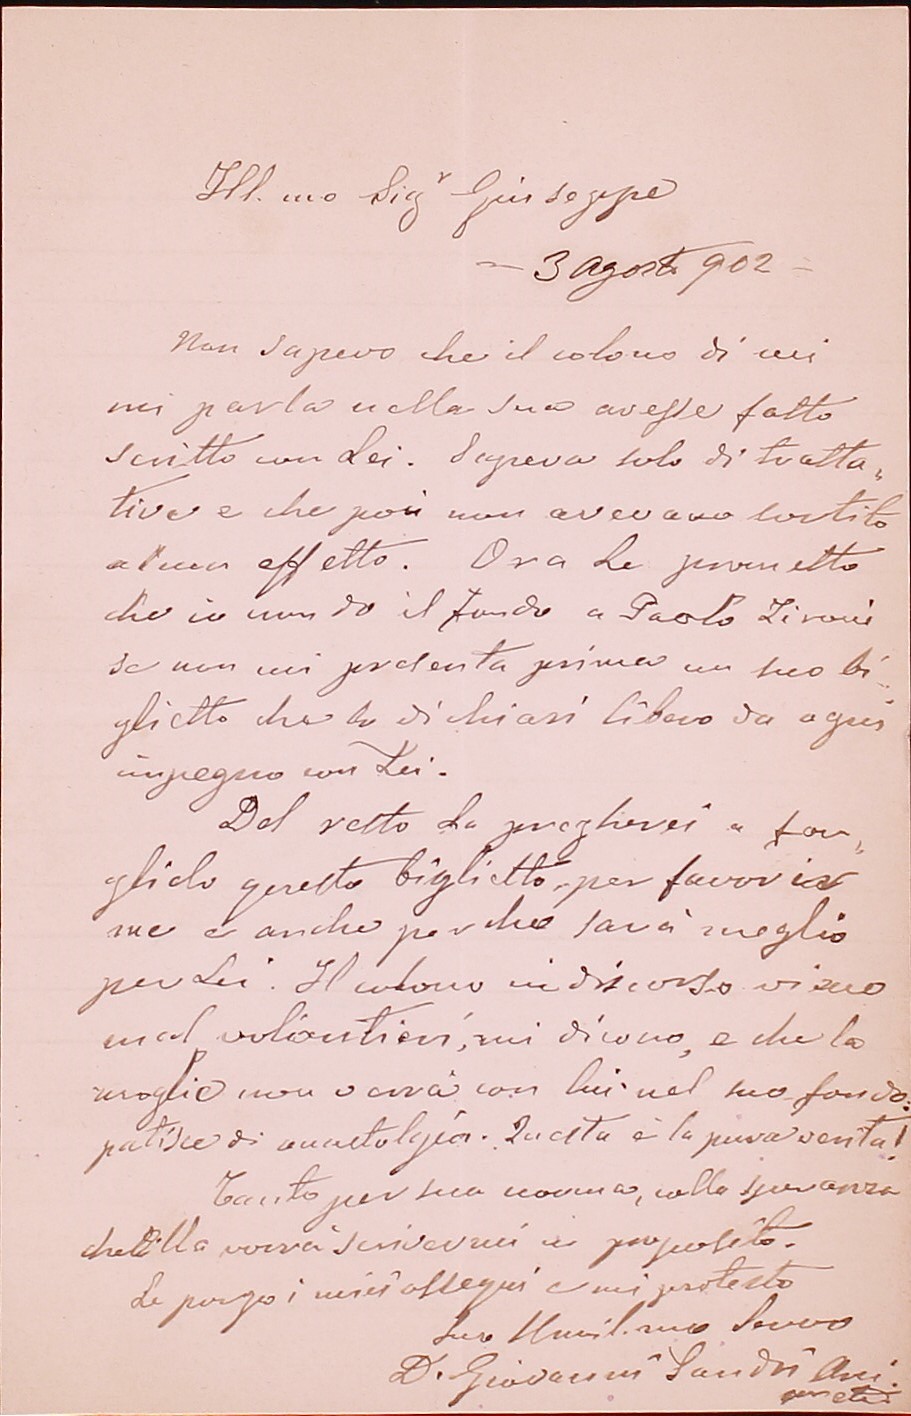 Ill.mo Sigr Giuseppe
— 3 Agosto 902 —
Non sapevo che il colono di cui
mi parla nella sua avesse fatto
scritto con Lei. Sapeva solo di tratta„
tive e che poi non avevano sortito
alcun effetto. Ora Le prometto
che io non do il fondo a Paolo Zironi
se non mi presenta prima un suo bi-
glietto che lo dichiari libero da ogni
impegno con Lei.
Del resto La pregherei a far„
glielo questo biglietto, per favorir
me e anche perché sarà meglio
per Lei. Il colono in discorso viene
mal volontieri, mi dicono, e che la
moglie non verrà con lui nel suo fondo:
patisce di nostalgia. Questa è la pura verità!
Tanto per sua norma, colla speranza
ch'Ella vorrà scrivermi in proposito.
Le porgo i miei ossequi e mi protesto
Suo Umil.mo Servo
Dr. Giovanni Sandri